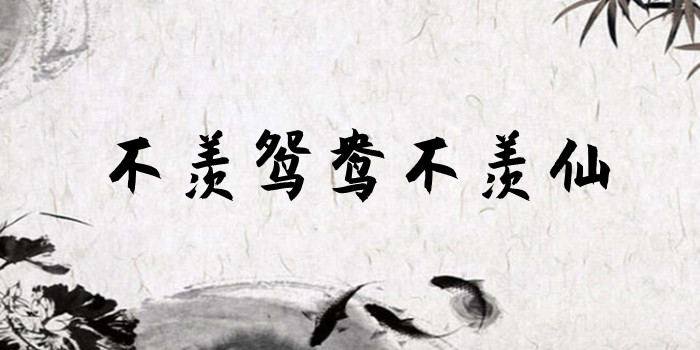 不羡鸳鸯不羡仙